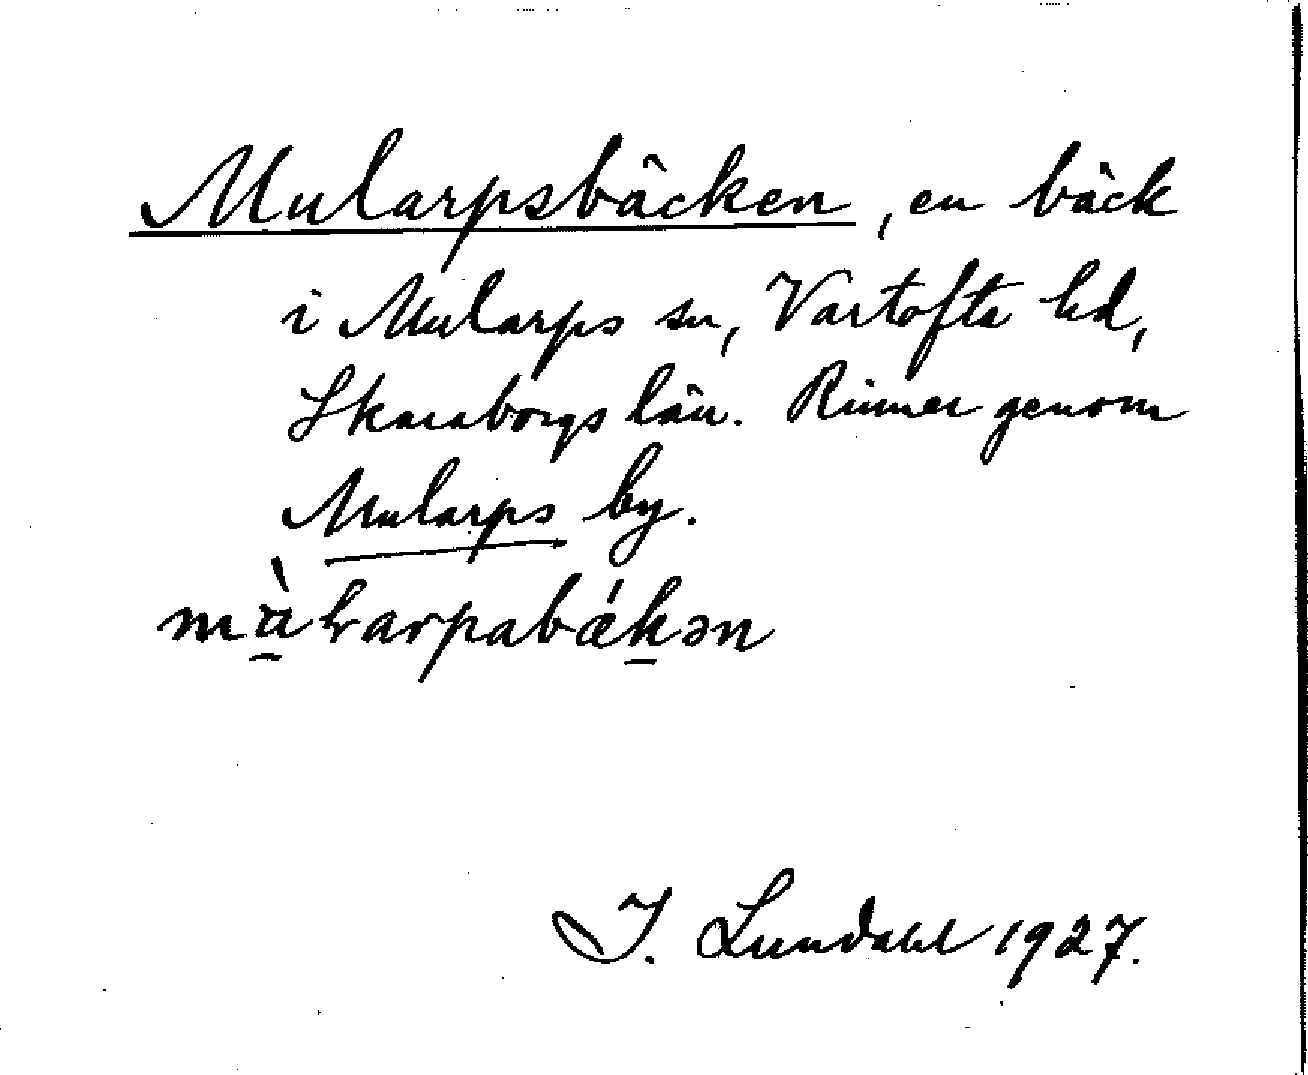 Mularpsbäcken, en bäck
i Mularps sn, Vartofta hd,
Skaraborgs län. Rinner genom
Mularps by.
I. Lundahl 1927.